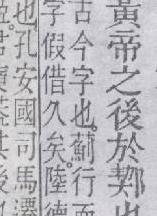 黃帝之後於也
古今字也。薊行而
字假借久矣。陸德
也孔安國司馬遷